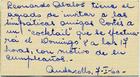 Leonardo Abalos tiene el
agrado de invitar a las
simpáticas amigas Celia a
un "cocktail" que se efectuará
el Domingo 9 a las 17
horas, con motivo de su
cumpleaños.
Andacollo, 7-I-60.-